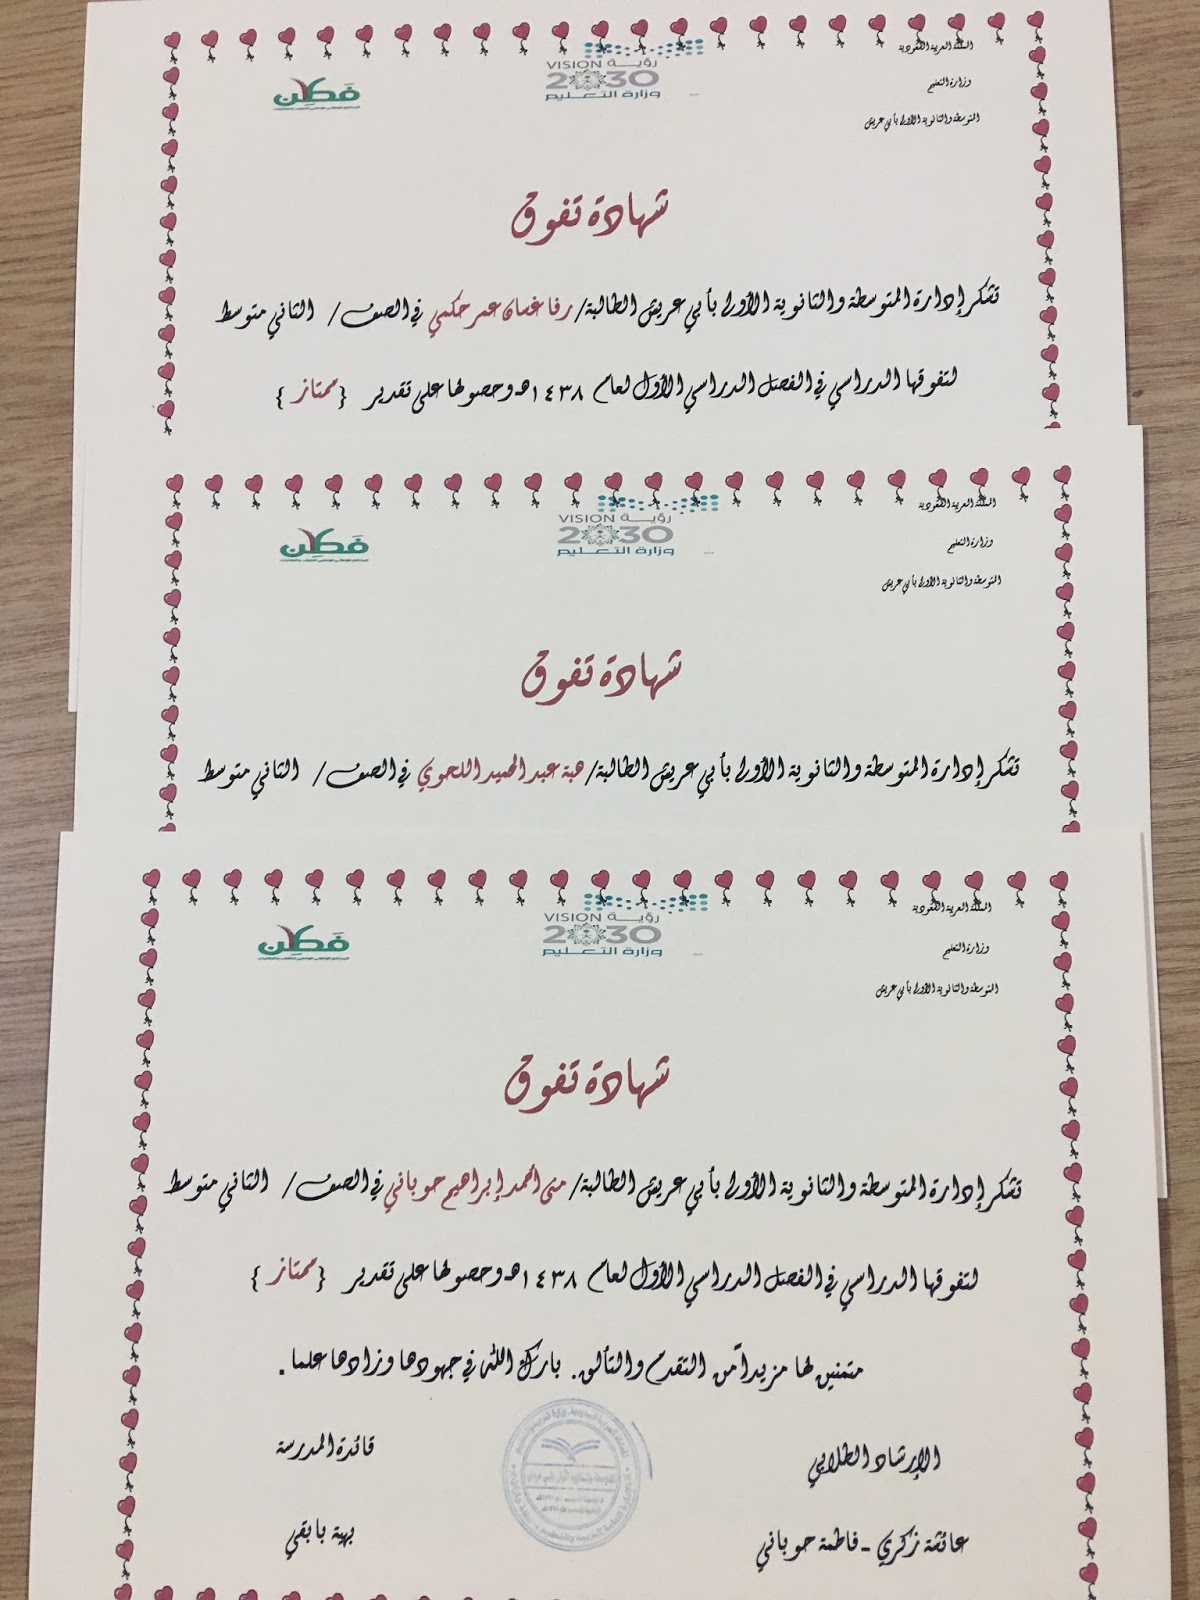 المملكة العربية السعودية
وزارة التعليم
المتوسطة والثانوية الأولى بأبي عريش
VISION رؤية
2030
وزارة التعليم
فَطِن
شهادة تفوق
تشكر إدارة المتوسطة والثانوية الأولى بأبي عريش الطالبة/ رفا غسان عمر حكمي في الصف / الثاني متوسط
لتفوقها الدراسي في الفصل الدراسي الأول لعام ١٤٣٨هـ وحصولها على تقدير { ممتاز }
المملكة العربية السعودية
وزارة التعليم
المتوسطة والثانوية الأولى بأبي عريش
VISION رؤية
2030
وزارة التعليم
فَطِن
شهادة تفوق
تشكر إدارة المتوسطة والثانوية الأولى بأبي عريش الطالبة/ هبة عبدالحميد اللحوي في الصف / الثاني متوسط
المملكة العربية السعودية
وزارة التعليم
المتوسطة والثانوية الأولى بأبي عريش
VISION رؤية
2030
وزارة التعليم
فَطِن
شهادة تفوق
تشكر إدارة المتوسطة والثانوية الأولى بأبي عريش الطالبة/ منى أحمد إبراهيم حوباني في الصف / الثاني متوسط
لتفوقها الدراسي في الفصل الدراسي الأول لعام ١٤٣٨هـ وحصولها على تقدير { ممتاز }
متمنين لها مزيداً من التقدم والتألق. بارك الله في جهودها وزادها علما .
الإرشاد الطلابي
قائدة المدرسة
عائشة زكري - فاطمة حوباني
بهية بابقي